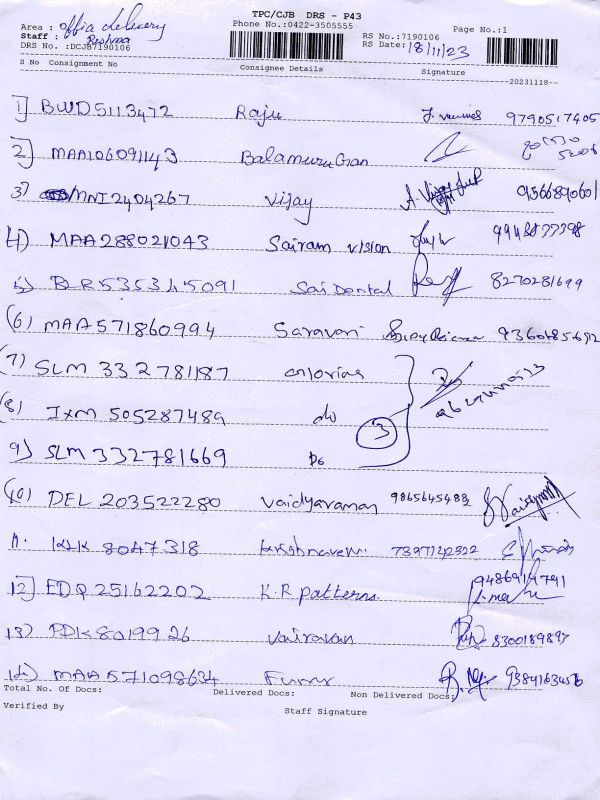 TPC/CJB DRS - P43
Area : offia delivery Phone No.:0422-3505555 Page No.:1
Staff : Reshma RS No.:7190106
DRS No. :DCJB7190106 RS Date: 18/11/23
S No Consignment No Consignee Details Signature
20231118--
1] BWD5113472 Raju 9790517405
2] MAA106091143 Balamurugan
3) MNI2404267 Vijay 9566890601
4) MAA288021043 Sairam vision
5) BLR535345091 Sai Dental 8270281699
(6) MAA571860994 Saravan
(7) SLM 332781187
(8) IXM 505287489 do
3
9) SLM 332781669 Do
(10) DEL 203522280 Vaidyaraman 9865645488
11. KKK 8047318 krishnaveni 7397142322
12] EDQ25162202 K.R patterns.
13) PDK8019926 Vairavan 8300189897
14) MAA571098634 9384163456
Total No. Of Docs: Delivered Docs: Non Delivered Docs:
Verified By Staff Signature